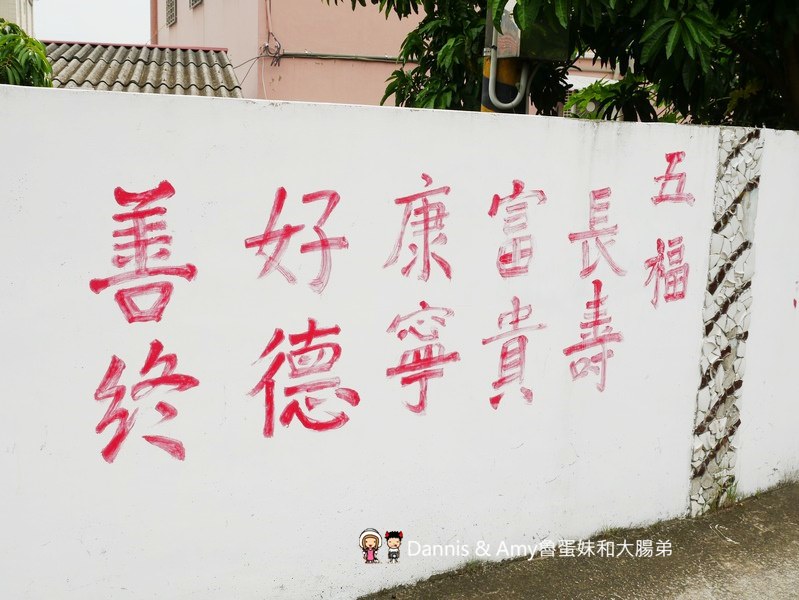 五福
長壽
富貴
康寧
好德
善終
Dannis & Amy魯蛋妹和大腸弟